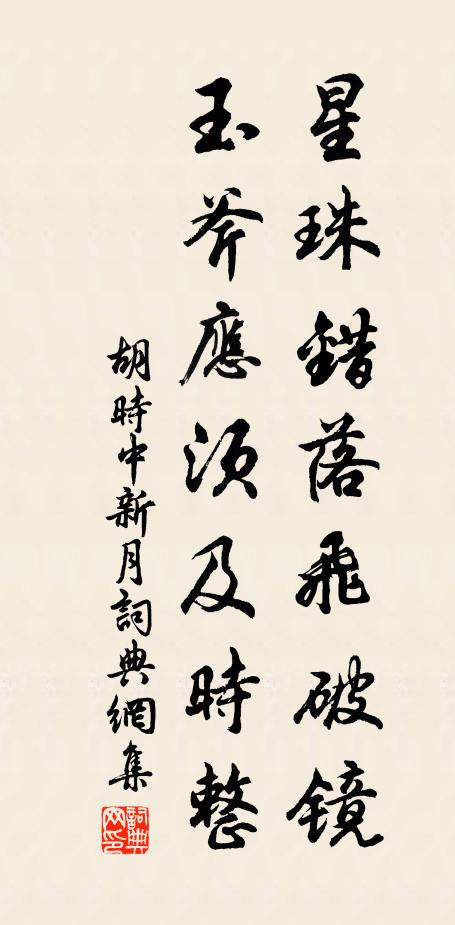 星珠錯落飛破鏡
玉斧應須及時整
胡時中新月詞典網集
詞典網印